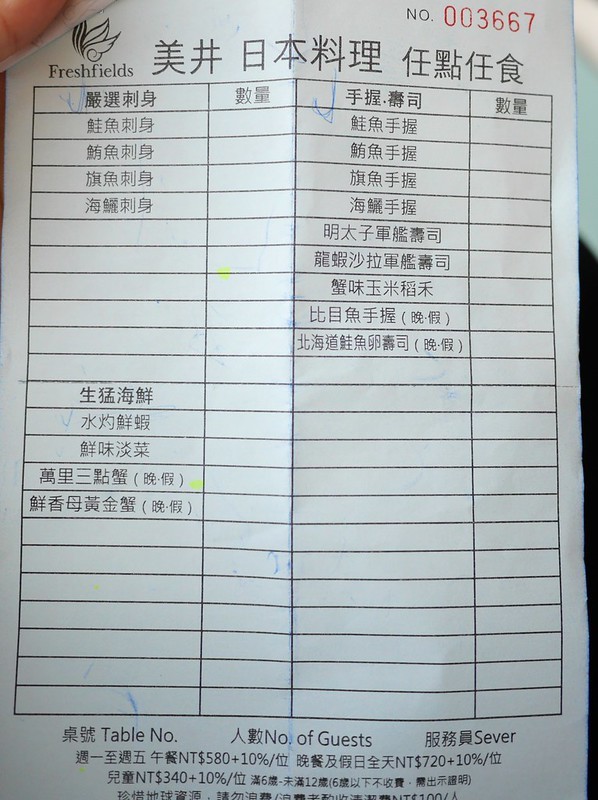 NO. 003667
Freshfields
美井 日本料理 任點任食
嚴選刺身 數量 手握·壽司 數量
鮭魚刺身 鮭魚手握
鮪魚刺身 鮪魚手握
旗魚刺身 旗魚手握
海鱺刺身 海鱺手握
明太子軍艦壽司
龍蝦沙拉軍艦壽司
蟹味玉米稻禾
比目魚手握(晚·假)
北海道鮭魚卵壽司(晚·假)
生猛海鮮
水灼鮮蝦
鮮味淡菜
萬里三點蟹(晚·假)
鮮香母黃金蟹(晚·假)
桌號 Table No. 人數No. of Guests 服務員Sever
週一至週五 午餐NT$580+10%/位 晚餐及假日全天NT$720+10%/位
兒童NT$340+10%/位 滿6歲-未滿12歲(6歲以下不收費，需出示證明)
珍惜地球資源，請勿浪費/浪費者酌收清潔費NT$100/人